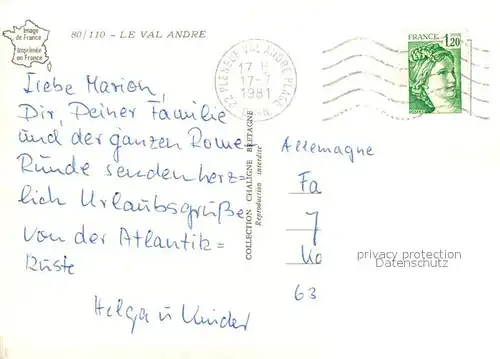 Image
de France
Imprimée
en France
80/110 - LE VAL ANDRE
22 PLENEUF VAL ANDRE PLAGE
17 H
17-7
1981
FRANCE
1,20
POSTES
Liebe Marion,
Dir, Deiner Familie
und der ganzen Romé-
Runde senden herz=
lich Urlaubsgrüße
von der Atlantik=
küste
Helga u Kinder
COLLECTION CHALIGNE BRETAGNE
Reproduction interdite
Allemagne
Fa
7
Ko
63
privacy protection
Datenschutz